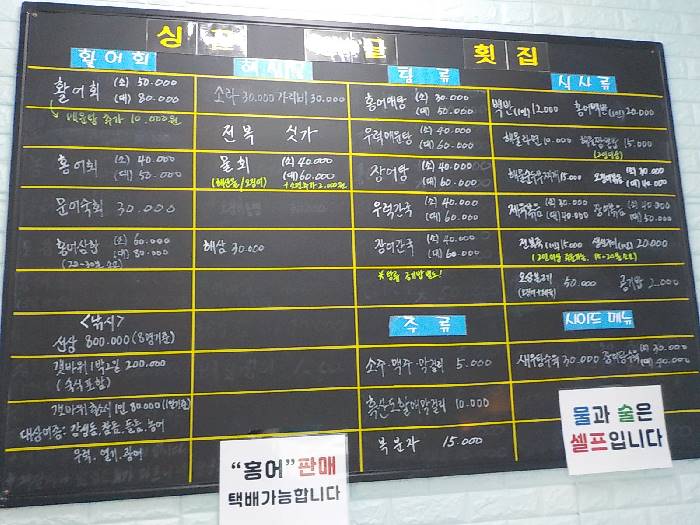 싱
횟집
활어회
활어회 (소) 50.000
(대) 80.000
매운탕 추가 10.000원
홍어회 (소) 40.000
(대) 50.000
문어숙회 30.000
홍어삼합 (소) 60.000
(대) 80.000
(20-30분 소요)
<낚시>
선상 800.000 (8명기준)
갯바위 1박2일 200.000
(숙식포함)
갯바위 1인 80.000 (1일기준)
대상어종: 감성돔, 참돔, 돌돔, 농어
우럭, 열기, 광어
소라 30.000 가리비 30.000
전복 싯가
물회 (소) 40.000
(대) 60.000
(해산물/오징어)
+소면추가 2.000원
해삼 30.000
탕류
홍어애탕 (소) 30.000
(대) 50.000
우럭매운탕 (소) 40.000
(대) 60.000
장어탕 (소) 40.000
(대) 60.000
우럭간국 (소) 40.000
(대) 60.000
장어간국 (소) 40.000
(대) 60.000
*탕류 공기밥 별도!
주류
소주·맥주·막걸리 5.000
막걸리 10.000
복분자 15.000
식사류
백반 12.000 홍어백반 20.000
해물라면 10.000 15.000
15.000 (소) 30.000
(대) 40.000
제육볶음 (소) 30.000
(대) 40.000
(소) 40.000
(대) 50.000
전복죽 15.000 20.000
50.000 공기밥 2.000
사이드 메뉴
새우탕수육 30.000 (소) 30.000
(대) 40.000
물과 술은
셀프입니다
“홍어” 판매
택배가능합니다